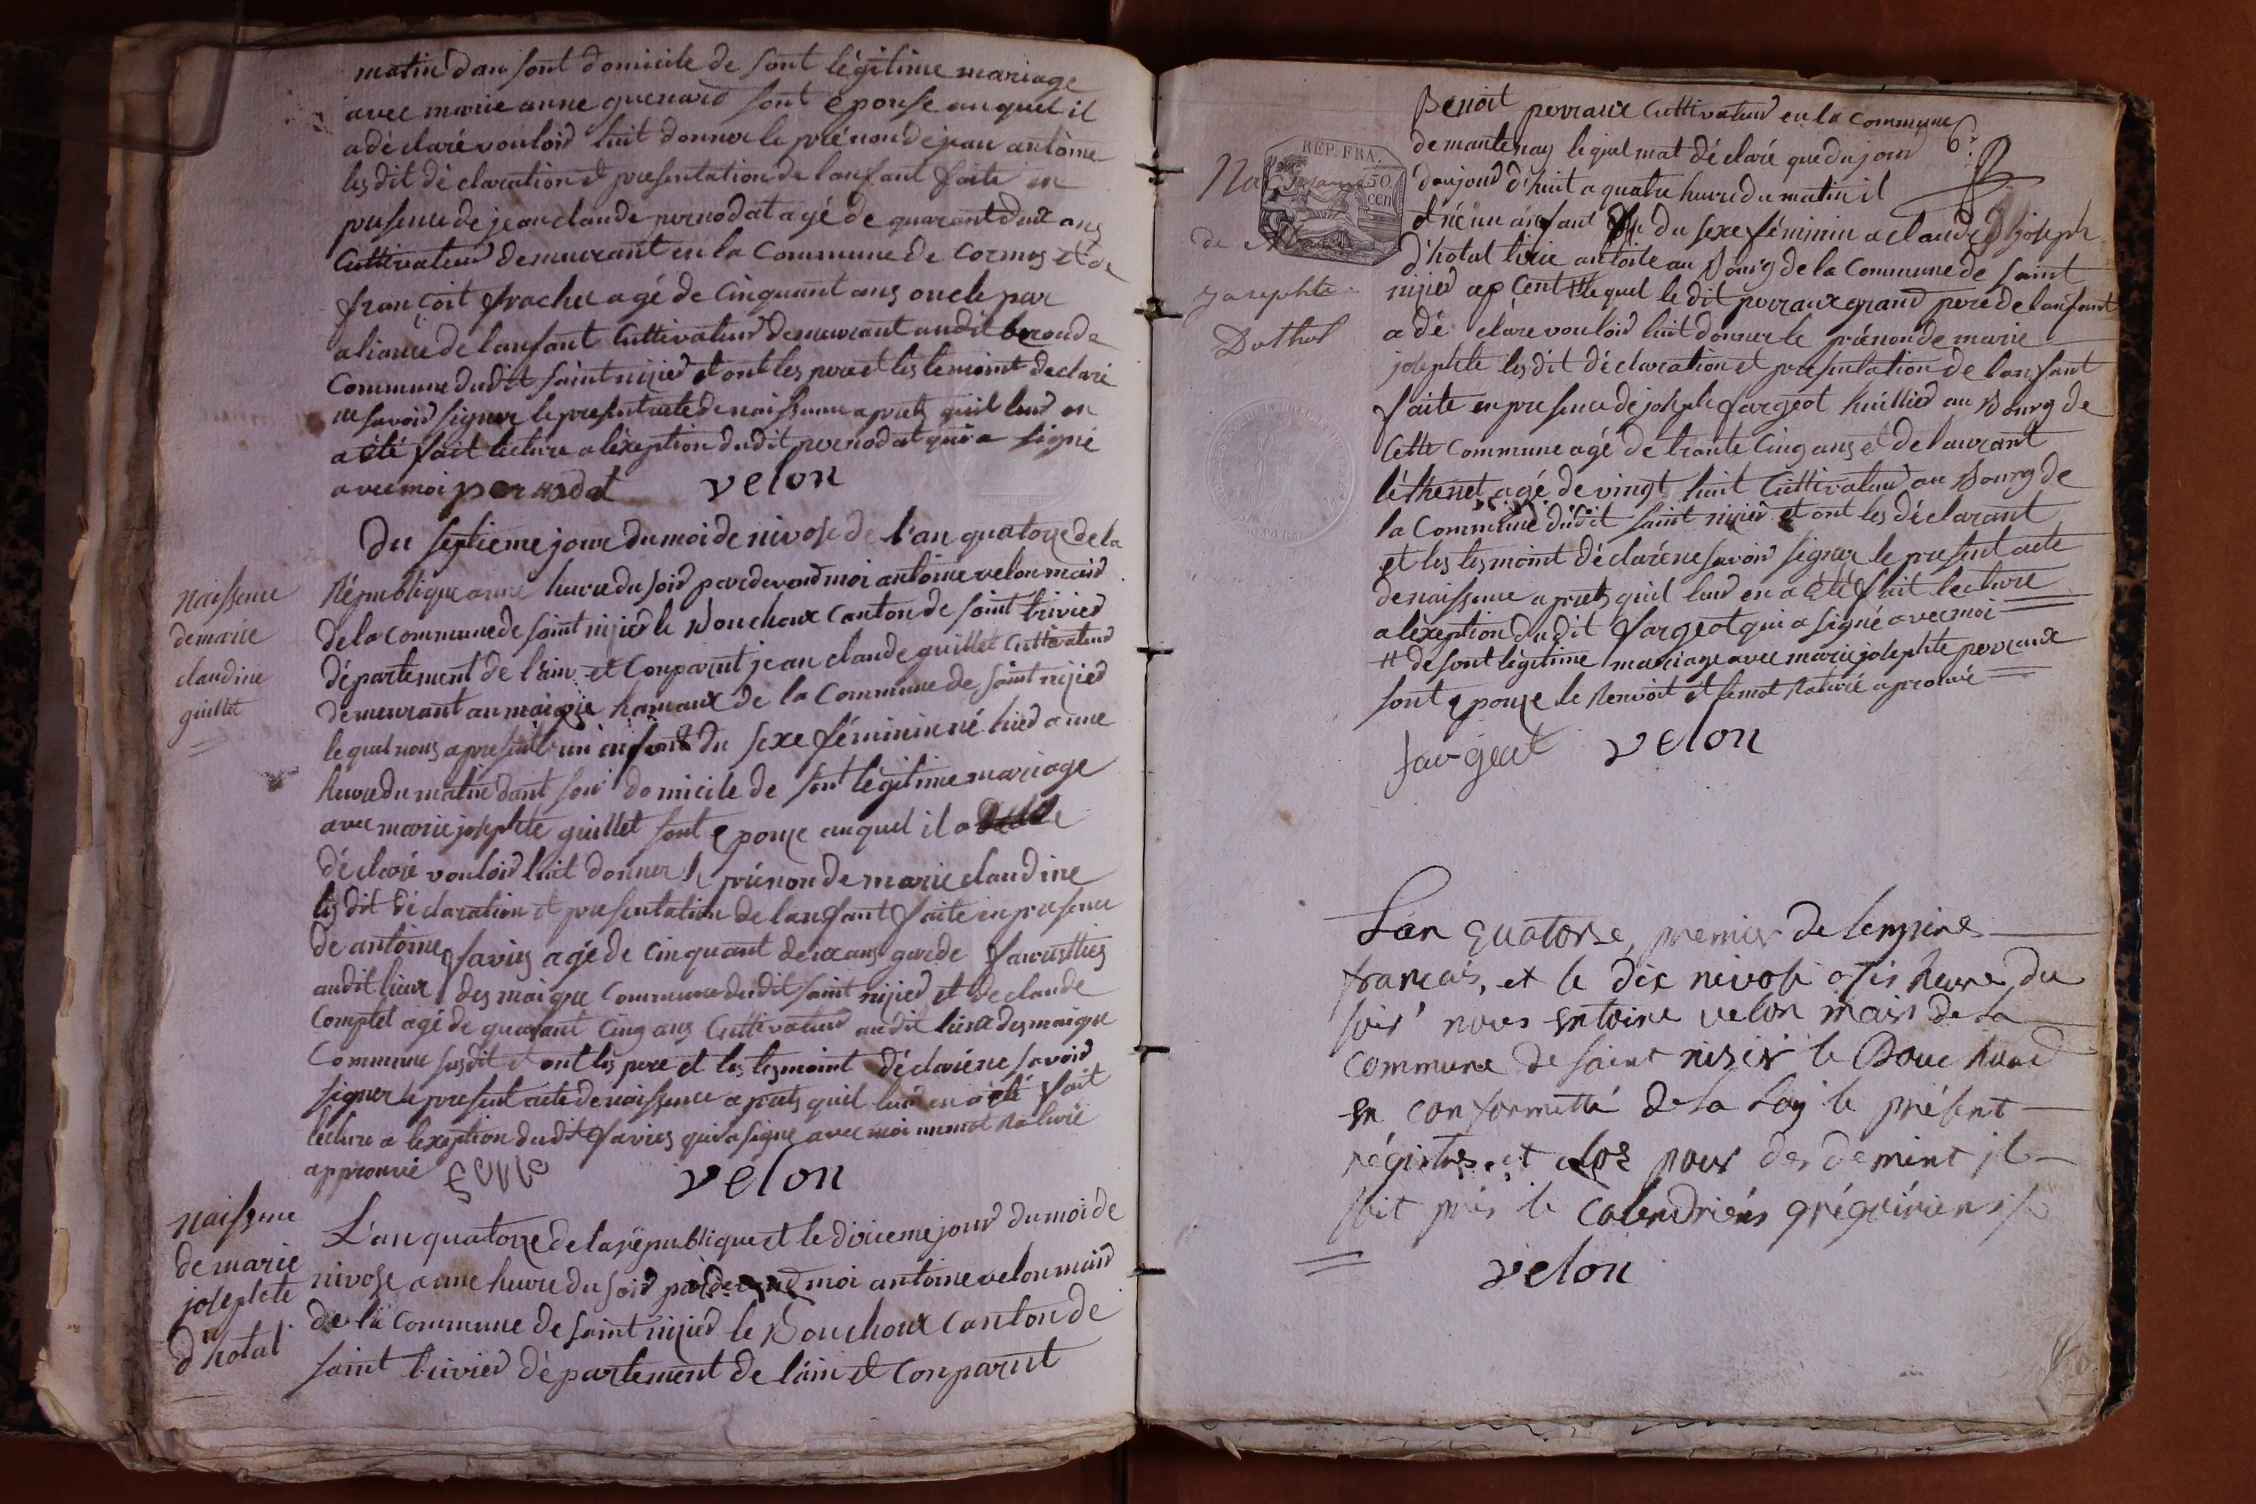 matin dan sont domicile de sont légitime mariage
avec marie anne guenard sont épouse auquel il
a déclaré vouloir luit donner le prénon de jean antoine
lesdit déclaration et presentation de lanfant faite en
presence de jean claude pernodat agé de quarant deux ans
Cultivateur demeurant en la Commune de Cormos et de
françoit frachet agé de Cinquant ans oncle par
aliance de lanfant Cultivateur demeurant audit
Commune dudit saint nizier et ont les pere et les temoint declaré
ne savoir signer le present acte de naissance aprets quil leur en
a été fait lecture a lexeption dudit pernodat qui a signé
avec moi pernodat velon
Du septieme jour du moi de nivose de l'an quatorze de la
République a une heure du soir pardevand moi antoine velon mair
de la Commune de saint nizier le Bouchoux Canton de saint trivier
département de lain et Conparut jean claude guillet Cultivateur
demeurant au hamaux de la Commune de saint nizier
lequel nous a presenté un enfant du sexe féminin né hier a une
heure du matin dant son domicile de sont légitime mariage
avec marie josephte guillet sont epouze auquel il a
déclaré vouloir luit donner le prénon de marie claudine
lesdit déclaration et presentation de lanfant faite en presence
de antoine favier agé de Cinquant deux ans garde
audit lieux des maigre Commune dudit saint nizier et de claude
Complet agé de quarant Cinq ans Cultivateur audit lieux des maigre
Commune susdit et ont les pere et les tesmoint déclaré ne savoir
signer le present acte de naissance aprets quil leur en a été fait
lecture a lexeption dudit favier qui a signé avec moi un mot Raturé
approuvé velon
naissence
de marie
claudine
guillet
L'an quatorze de la république et le dixieme jour du moi de
nivose a une heure du soir pardevand moi antoine velon mair
de la Commune de saint nizier le Bouchoux Canton de
saint trivier département de lain et Conparut
naissence
de marie
josephte
d'hotal
Benoit perraux Cultivateur en la Commune
de mantenay lequel mat déclaré que du jour
daujourd'huit a quatre heure du matin il
et né un anfant du sexe féminin a claude joseph
d'hotal au Bourg de la Commune de saint
nizier lequel le dit perraux grand pere de lanfant
a déclaré vouloir luit donner le prénon de marie
josephte lesdit déclaration et presentation de lanfant
faite en presence de joseph fargeot huillier au Bourg de
Cette Commune agé de trante Cinq ans et de laurant
léthenet agé de vingt huit Cultivateur au Bourg de
la Commune dudit saint nizier et ont les déclarant
et les tesmoint déclaré ne savoir signer le present acte
de naissance aprets quil leur en a été fait lecture
a lexeption dudit fargeot qui a signé avec moi
# de sont légitime mariage avec marie josephte perraux
sont epouze le Renvoit et le mot Raturé aprouvé
fargeot velon
REP. FRA.
50
cen
de
josephte
Dothal
L'an quatorse, premier de lempire
francais, et le dix nivose a sis heure du
soir nous entoine velon mair de la
commune de saint nisier le Bouchoux
en conformetté de la loy le présent
régistre et clos pour
soit pris le calendriers grégoiriens
velon